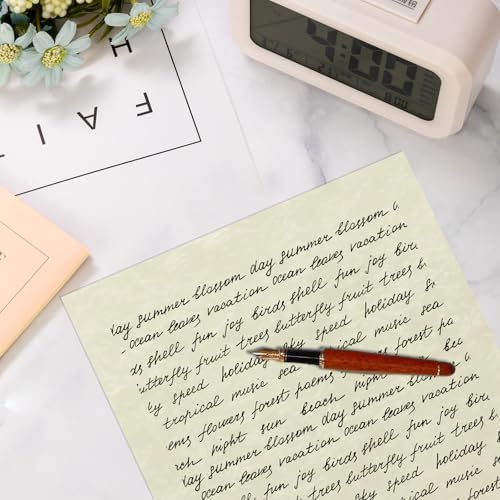 FAIT
4:00
day summer blossom day summer blossom
ocean leaves vacation ocean leaves vacation
shell fun joy birds shell fun joy bir
butterfly fruit trees butterfly fruit trees b
speed holiday sky speed holiday s
tropical music sea tropical music sea
ems flowers forest poems flowers forest pa
night sun beach night sun
day summer blossom day summer blossom
ocean leaves vacation ocean leaves vacation
shell fun joy birds shell fun joy bir
butterfly fruit trees butterfly fruit trees b
speed holiday sky speed holiday
tropical music sea